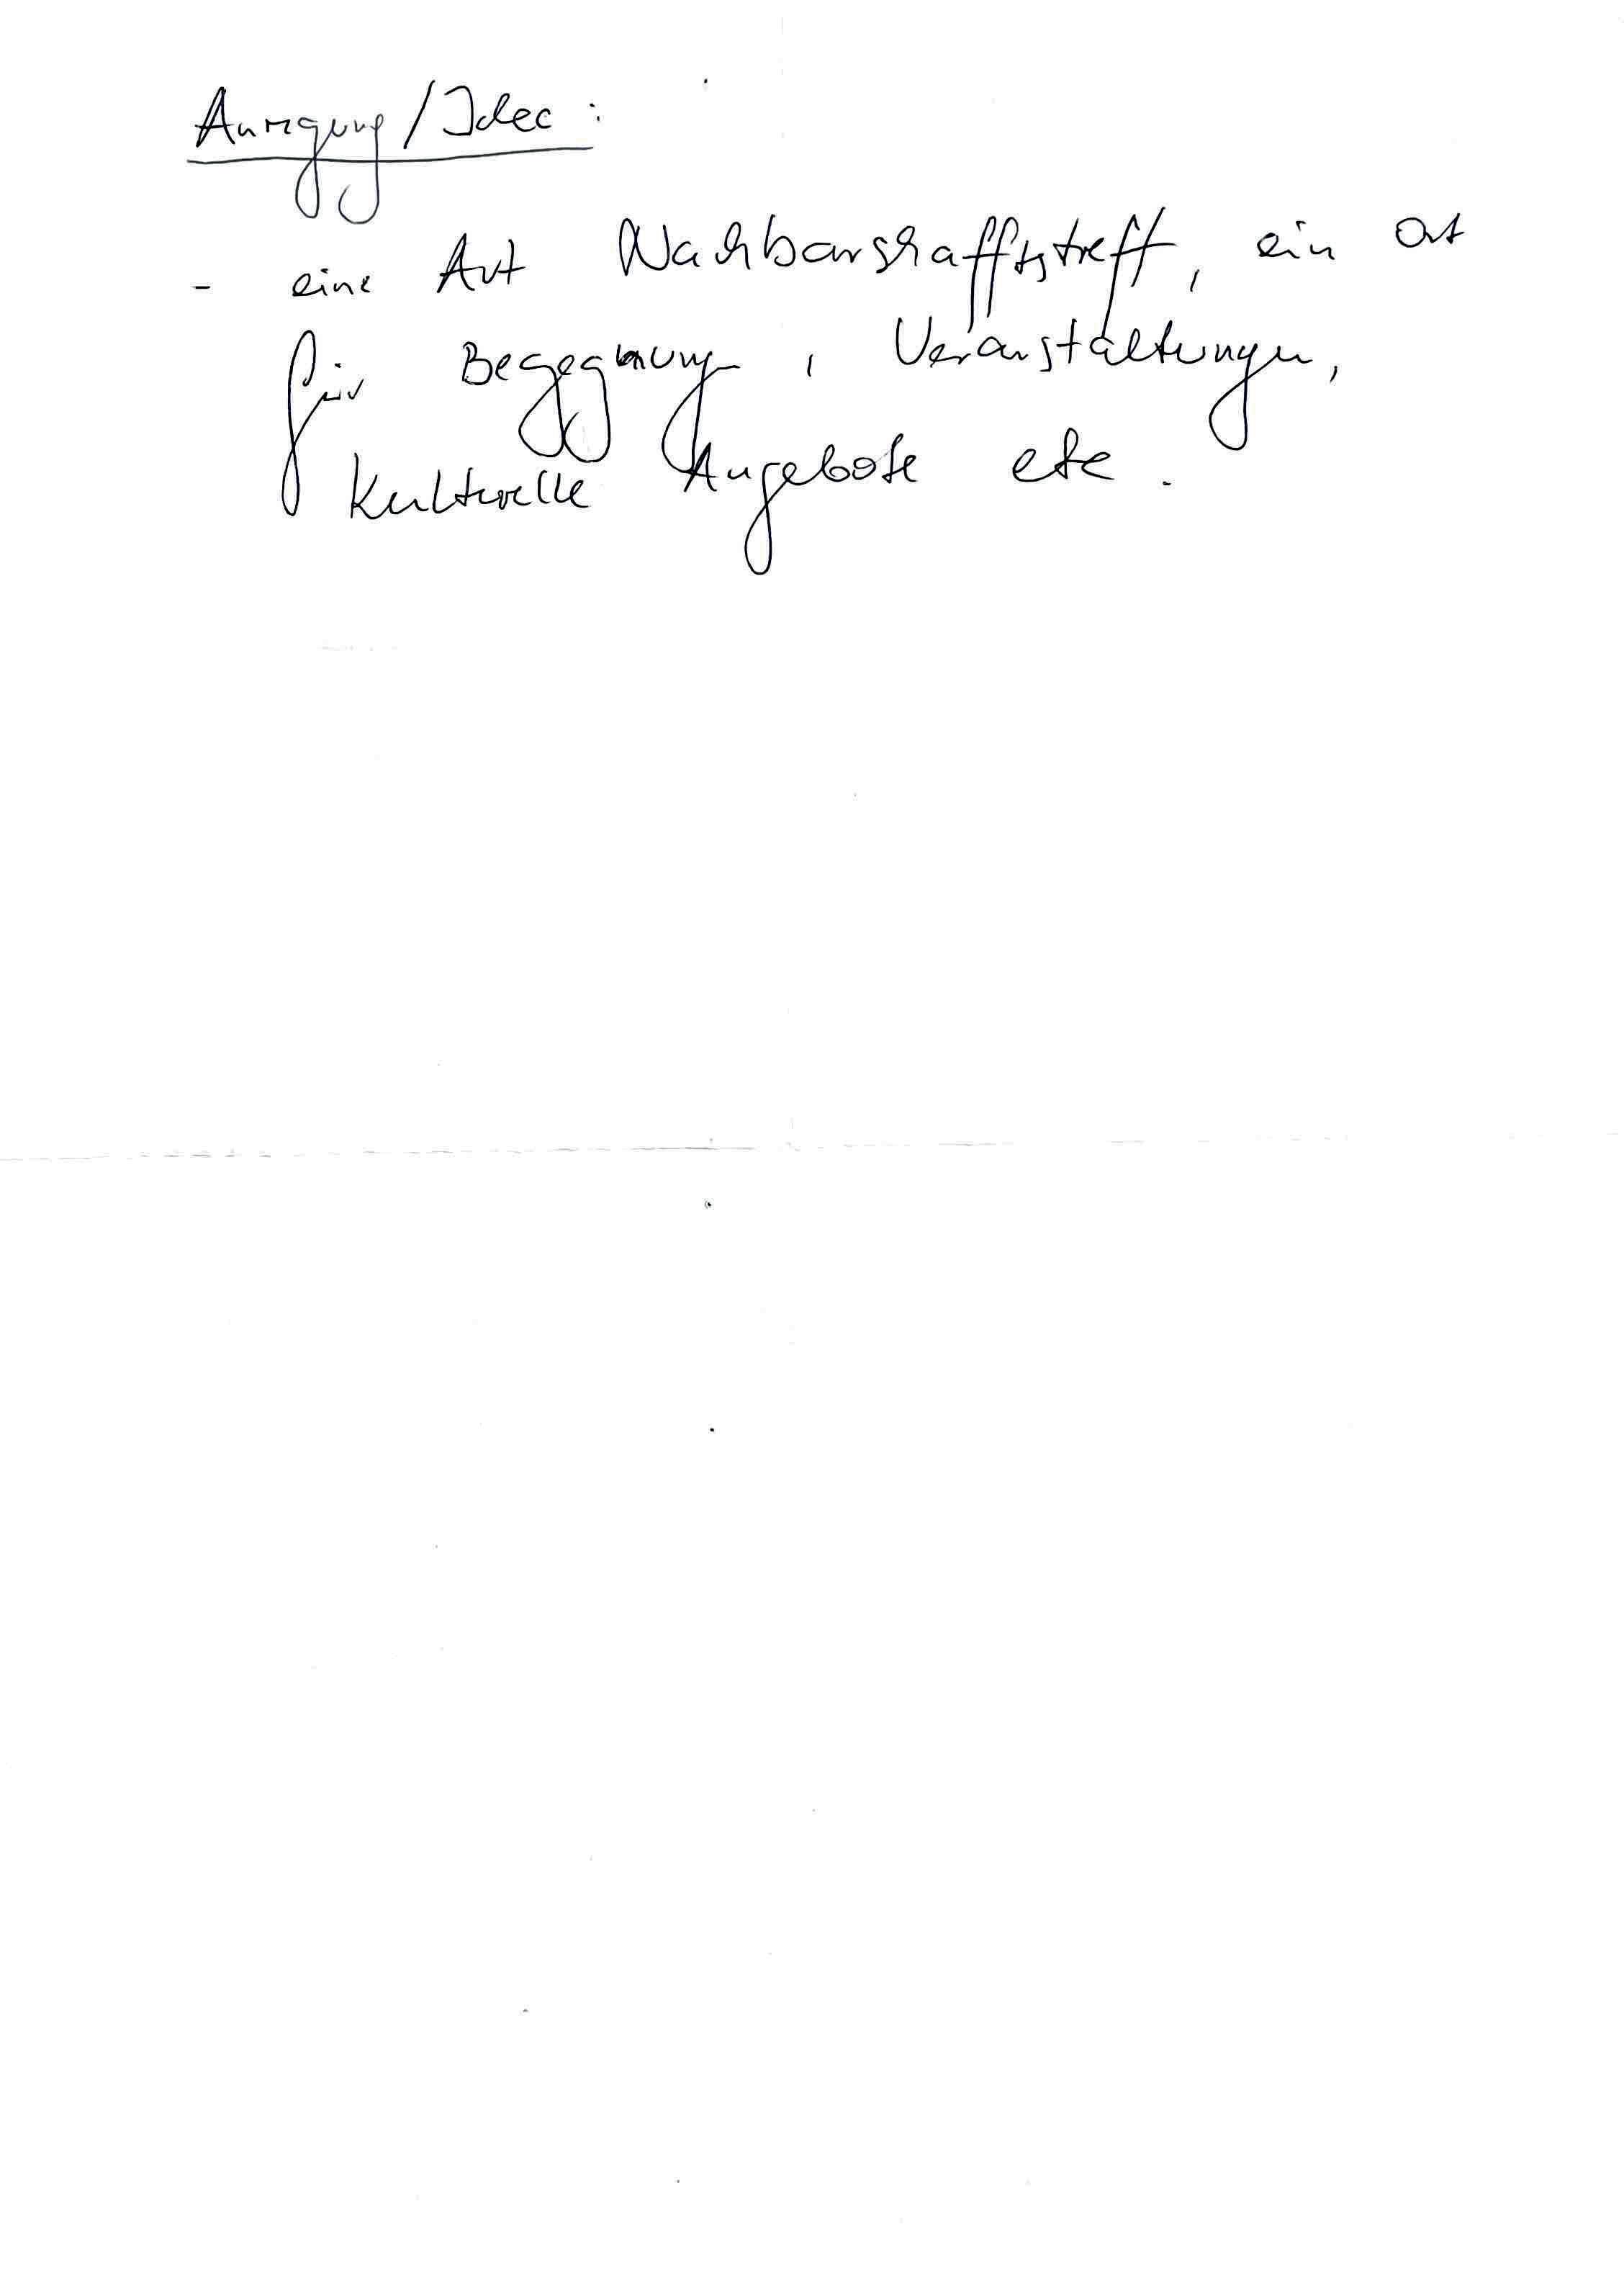 Anregung/Idee:
- eine Art Nachbarschafftstreff, ein Ort
für Begegnung, Veranstaltungen,
kulturelle Angebote etc.